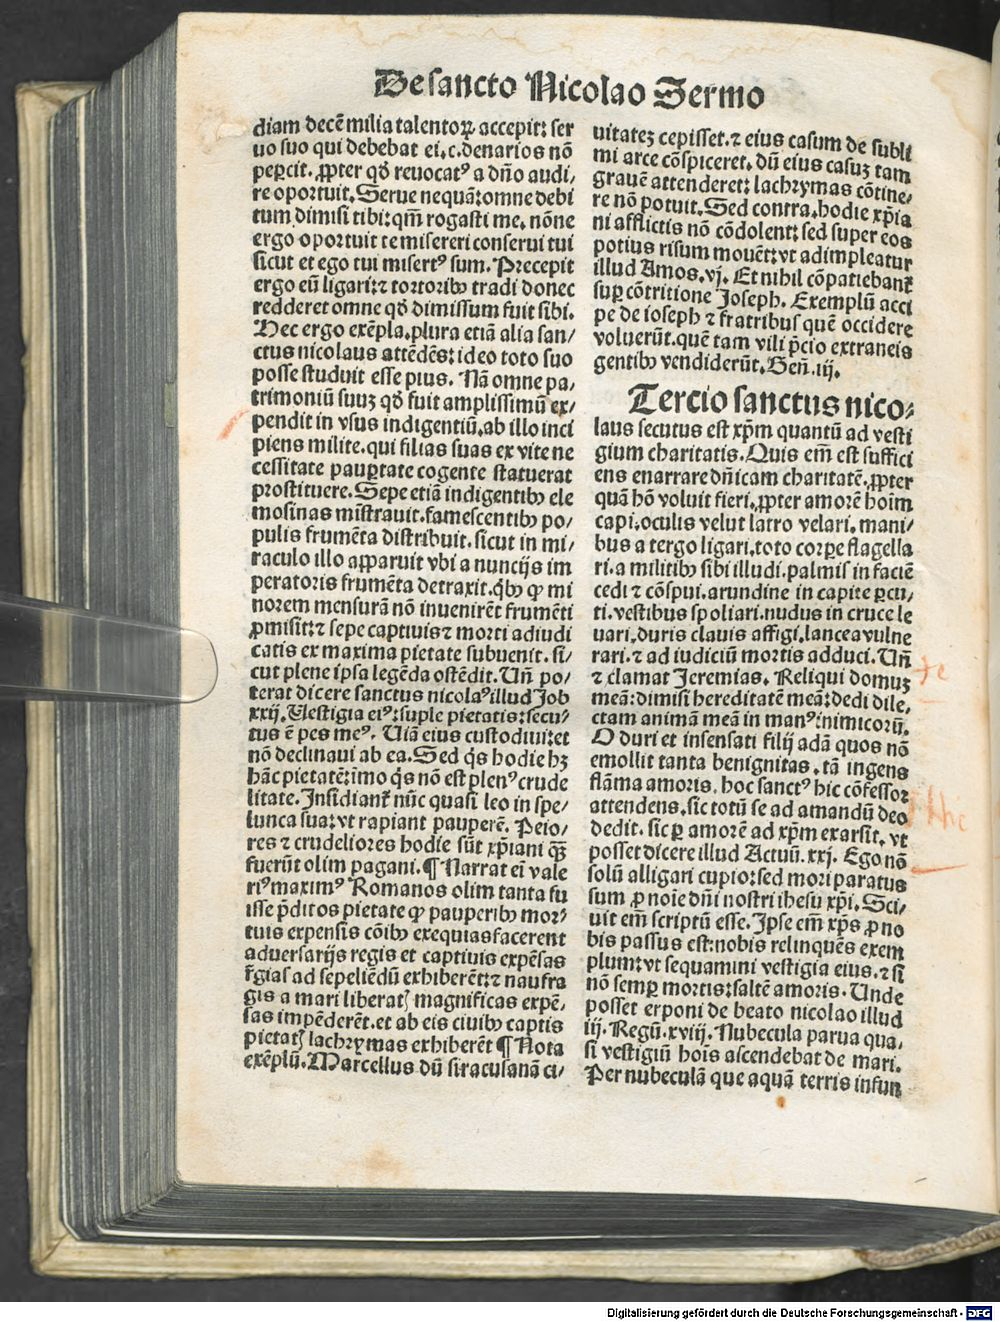 De sancto Nicolao Sermo
diam decē milia talentoꝝ accepit: ser
uo suo qui debebat ei.c.denarios nō
peꝑcit. ꝓpter qđ reuocatꝰ a dño audi/
re oportuit. Serue nequā: omne debi
tum dimisi tibi: qm̄ rogasti me. nōne
ergo oportuit te misereri conserui tui
sicut et ego tui misertꝰ sum. Precepit
ergo eū ligari: ⁊ tortoribꝰ tradi donec
redderet omne qđ dimissum fuit sibi.
Hec ergo exēpla. plura etiā alia san/
ctus nicolaus attēdēs: ideo toto suo
posse studuit esse pius. Nā omne pa/
trimoniū suuꝫ qđ fuit amplissimū ex/
pendit in vsus indigentiū. ab illo inci
piens milite. qui filias suas ex vite ne
cessitate pauꝑtate cogente statuerat
prostituere. Sepe etiā indigentibꝰ ele
mosinas mīstrauit. famescentibꝰ po/
pulis frumēta distribuit. sicut in mi/
raculo illo apparuit vbi a nuncijs im
peratoris frumēta detraxit. qͥbꝰ ꝙ mi
norem mensurā nō inuenirēt frumēti
ꝓmisit: ⁊ sepe captiuis ⁊ morti adiudi
catis ex maxima pietate subuenit. si/
cut plene ipsa legēda ostēdit. Vn̄ po/
terat dicere sanctus nicolaꝰ illud Job
xxij. Vestigia eiꝰ: suple pietatis: secu/
tus ē pes meꝰ. Viā eius custodiui: et
nō declinaui ab ea. Sed qͥs hodie hꝫ
hāc pietatē: imo qͥs nō est plenꝰ crude
litate. Insidiant᷑ nūc quasi leo in spe/
lunca sua: vt rapiant pauperē. Peio/
res ⁊ crudeliores hodie sūt xp̄iani qͣꝫ
fuerūt olim pagani. ¶ Narrat em̄ vale
riꝰ maximꝰ Romanos olim tanta fu
isse p̄ditos pietate ꝙ pauperibꝰ mor/
tuis expensis cōibꝰ exequias facerent
aduersarijs regis et captiuis expēsas
r̄gias ad sepeliēdū exhiberēt: ⁊ naufra
gis a mari liberatꝭ magnificas expē/
sas impēderēt. et ab eis ciuibꝰ captis
pietatꝭ lachrymas exhiberēt ¶ Nota
exēplū. Marcellus dū siracusanā ci/
uitateꝫ cepisset. ⁊ eius casum de subli
mi arce cōspiceret. dū eius casuꝫ tam
grauē attenderet: lachrymas cōtine/
re nō potuit. Sed contra. hodie xp̄ia
ni afflictis nō cōdolent: sed super eos
potius risum mouēt: vt adimpleatur
illud Amos. vj. Et nihil cōpatiebant᷑
suꝑ cōtritione Joseph. Exemplū acci
pe de ioseph ⁊ fratribus quē occidere
voluerūt. quē tam vili p̄cio extraneis
gentibꝰ vendiderūt. Gen̄. iij.
Tercio sanctus nico/
laus secutus est xp̄m quantū ad vesti
gium charitatis. Quis em̄ est suffici
ens enarrare dn̄icam charitatē. ꝓpter
quā hō voluit fieri. ꝓpter amorē hoīm
capi. oculis velut latro velari. mani/
bus a tergo ligari. toto corꝑe flagella
ri. a militibꝰ sibi illudi. palmis in faciē
cedi ⁊ cōspui. arundine in capite ꝑcu/
ti. vestibus spoliari. nudus in cruce le
uari. duris clauis affigi. lancea vulne
rari. ⁊ ad iudiciū mortis adduci. Vn̄
⁊ clamat Jeremias. Reliqui domuꝫ
meā: dimisi hereditatē meā: dedi dile/
ctam animā meā in manꝰ inimicorū.
O duri et insensati filij adā quos nō
emollit tanta benignitas. tā ingens
flāma amoris. hoc sanctꝰ hic cōfessor
attendens. sic totū se ad amandū deo
dedit. sic ꝑ amorē ad xp̄m exarsit. vt
posset dicere illud Actuū. xxj. Ego nō
solū alligari cupio: sed mori paratus
sum ꝓ noīe dn̄i nostri ihesu xp̄i. Sci/
uit em̄ scriptū esse. Ipse em̄ xp̄s ꝓ no
bis passus est: nobis relinquēs exem
plum: vt sequamini vestigia eius. ⁊ si
nō semꝑ mortis: saltē amoris. Unde
posset exponi de beato nicolao illud
iij. Regū. xviij. Nubecula parua qua/
si vestigiū hoīs ascendebat de mari.
Per nubeculā que aquā terris infun
Digitalisierung gefördert durch die Deutsche Forschungsgemeinschaft - DFG